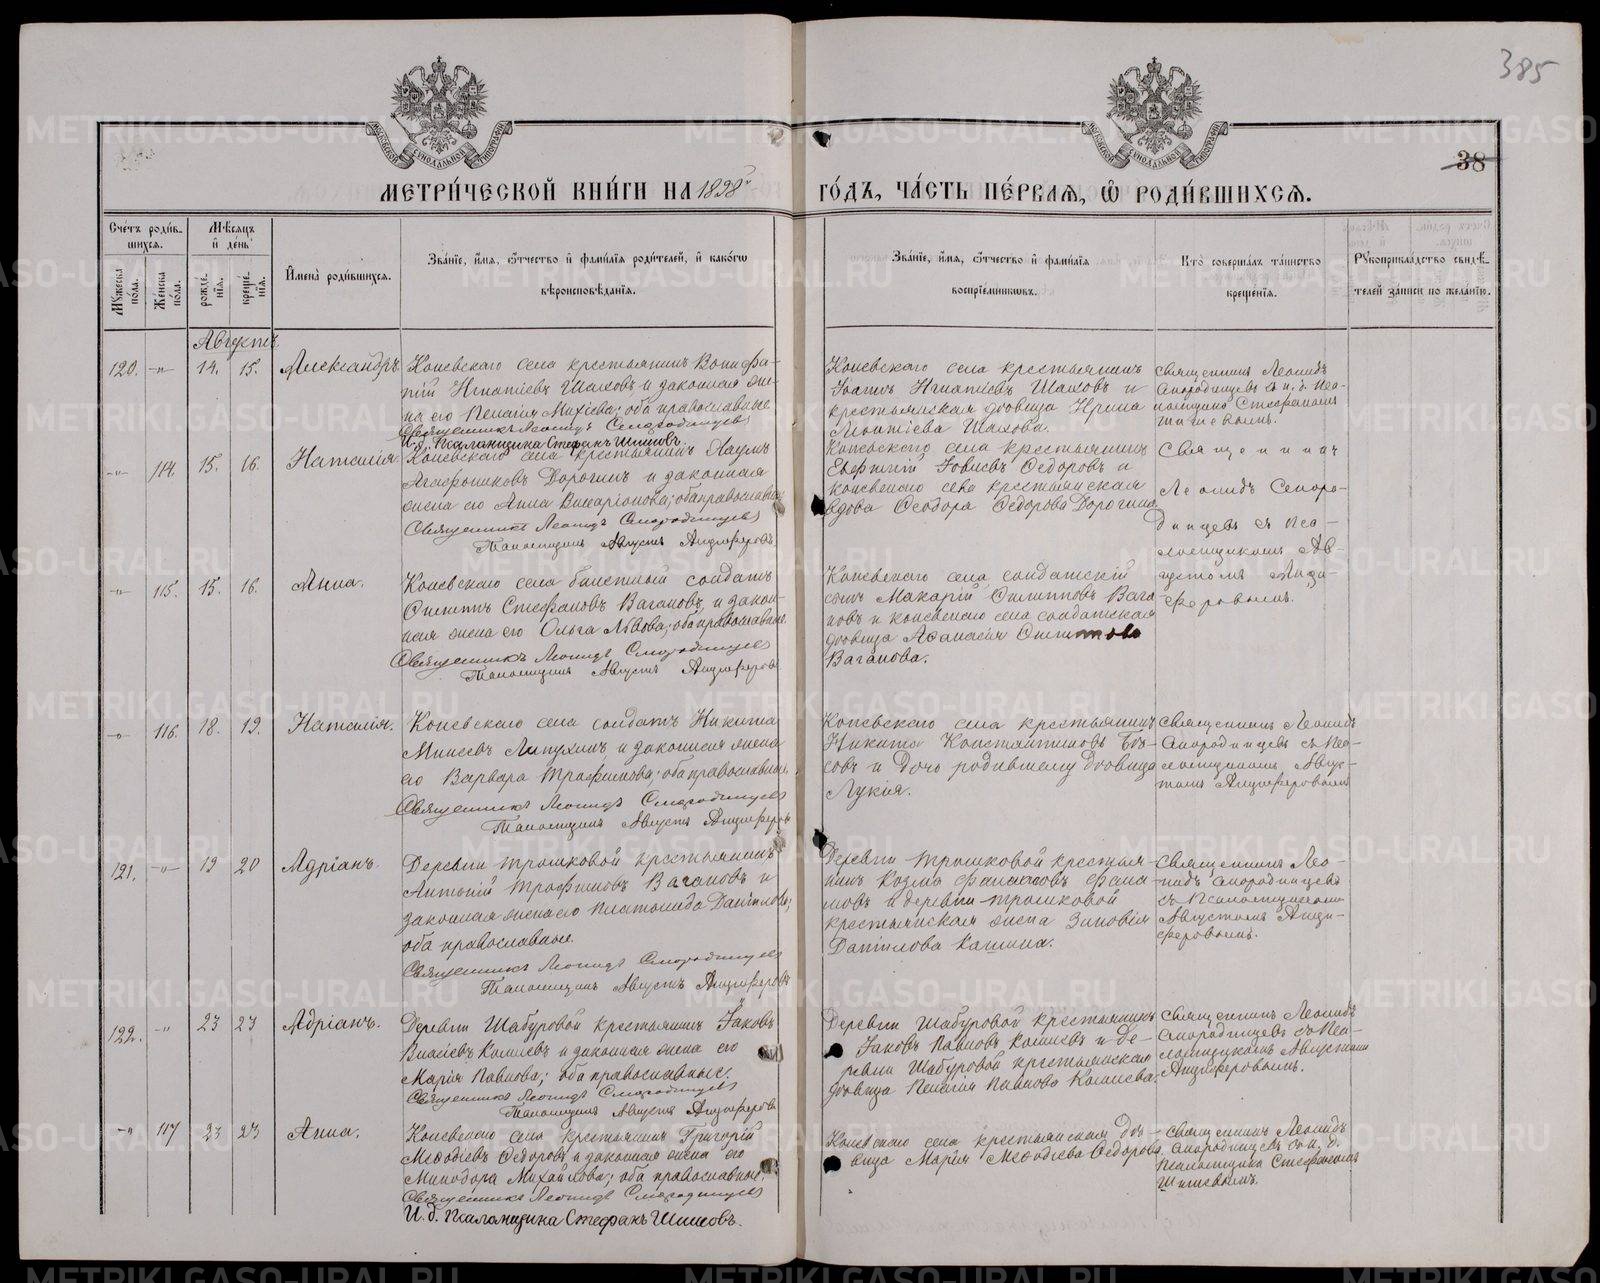 385
38
МЕТРИ́ЧЕСКОЙ КНИ́ГИ НА 1898 й
ГО́ДЪ, ЧА́СТЬ ПЕ́РВАѦ, Ѡ РОДИ́ВШИХСѦ.
Сче́тъ роди́вшихсѧ.
Мѣ́сѧцъ и҆ де́нь
Мꙋ́жеска по́ла.
Же́нска по́ла.
рожде́нїѧ.
креще́нїѧ.
И҆мена̀ роди́вшихсѧ.
Зва́нїе, и҆́мѧ, ѻ҆́тчество и҆ фами́лїѧ роди́телей, и҆ како́гѡ
вѣроисповѣ́данїѧ.
Зва́нїе, и҆́мѧ, ѻ҆́тчество и҆ фами́лїѧ
воспрїе́мникѡвъ.
Кто̀ соверша́лъ та́инство
креще́нїѧ.
Рꙋкоприкла́дство свидѣ́-
телей за́писи по жела́нїю.
Августъ.
120. -"- 14. 15. Александръ.
Коневскаго села крестьянинъ Вонифа-
тій Игнатіевъ Шаховъ и законная же-
на его Пелагія Михіева; оба православные
Священникъ Леонидъ Смородинцевъ
И. д. Псаломщика Стефанъ Шишовъ.
Коневскаго села крестьянинъ
Іоаннъ Игнатіевъ Шаховъ и
крестьянская дѣвица Ирина
Леонтіева Шахова.
Священникъ Леонидъ
Смородинцевъ съ и. д. Пса-
ломщика Стефаномъ
Шишевымъ.
-"- 114. 15. 16. Наталія.
Коневскаго села крестьянинъ Наумъ
Агафониковъ Дорогинъ и законная
жена его Анна Виссаріонова; оба православные
Священникъ Леонидъ Смородинцевъ
Псаломщикъ Августъ Анциферовъ.
Коневскаго села крестьянинъ
Іовлевъ Ѳедоровъ и
коневскаго села крестьянская
вдова Ѳеодора Ѳедорова Дорогина
Священникъ
Леонидъ Смородинцевъ
съ Пса-
ломщикомъ Ав-
густомъ Анци-
феровымъ.
-"- 115. 15. 16. Анна.
Коневскаго села билетный солдатъ
Филиппъ Стефановъ Вагановъ, и закон-
ная жена его Ольга Львова; оба православные
Священникъ Леонидъ Смородинцевъ
Псаломщикъ Августъ Анциферовъ
Коневскаго села солдатскій
сынъ Макарій Филипповъ Вага-
новъ и коневскаго села солдатская
дѣвица Аѳанасія Филиппова
Ваганова.
-"- 116. 18. 19. Наталія.
Коневскаго села солдатъ Никита
Минеевъ Липухинъ и законная жена
его Варвара Трофимова; оба православные
Священникъ Леонидъ Смородинцевъ
Псаломщикъ Августъ Анциферовъ
Коневскаго села крестьянинъ
Никита Константиновъ
и дочь родившему дѣвица
Лукія.
Священникъ Леонидъ
Смородинцевъ съ Пса-
ломщикомъ Авгус-
томъ Анциферовымъ
121. -"- 19 20 Адріанъ.
Деревни Трошковой крестьянинъ
Антоній Трофимовъ Вагановъ и
законная жена его Платонида Даниилова;
оба православные.
Священникъ Леонидъ Смородинцевъ
Псаломщикъ Августъ Анциферовъ
Деревни Трошковой крестья-
нинъ Козма
и деревни Трошковой
крестьянская жена Зиновія
Даніилова Кашина.
Священникъ Лео-
нидъ Смородинцевъ
съ Псаломщикомъ
Августомъ Анци-
феровымъ.
122. -"- 23 23 Адріанъ.
Деревни Шабуровой крестьянинъ Іаковъ
Власіевъ Комлевъ и законная жена его
Марія Павлова; оба православные.
Священникъ Леонидъ Смородинцевъ
Псаломщикъ Августъ Анциферовъ
Деревни Шабуровой крестьянинъ
Іаковъ Павловъ Комлевъ и де-
ревни Шабуровой крестьянская
дѣвица Пелагія Павлова Комлева.
Священникъ Леонидъ
Смородинцевъ съ Пса-
ломщикомъ Августомъ
Анциферовымъ.
-"- 117 23 23 Анна.
Коневскаго села крестьянинъ Григорій
Меѳодіевъ Ѳедоровъ и законная жена его
Минодора Михайлова; оба православные.
Священникъ Леонидъ Смородинцевъ
И. д. Псаломщика Стефанъ Шишовъ.
Коневскаго села крестьянская дѣ-
вица Марія Меѳодіева Ѳедорова.
Священникъ Леонидъ
Смородинцевъ съ и. д.
Псаломщика Стефаномъ
Шишевымъ.
METRIKI.GASO-URAL.RU